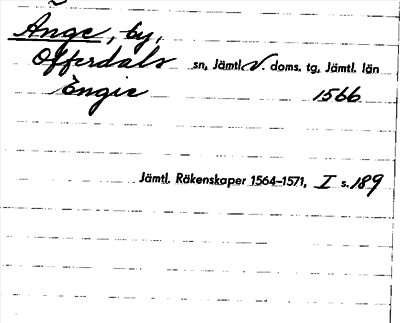 Ånge, by,
Offerdals sn, Jämtl. V. doms. tg, Jämtl. län
Engie 1566
Jämtl. Räkenskaper 1564–1571, I s. 189